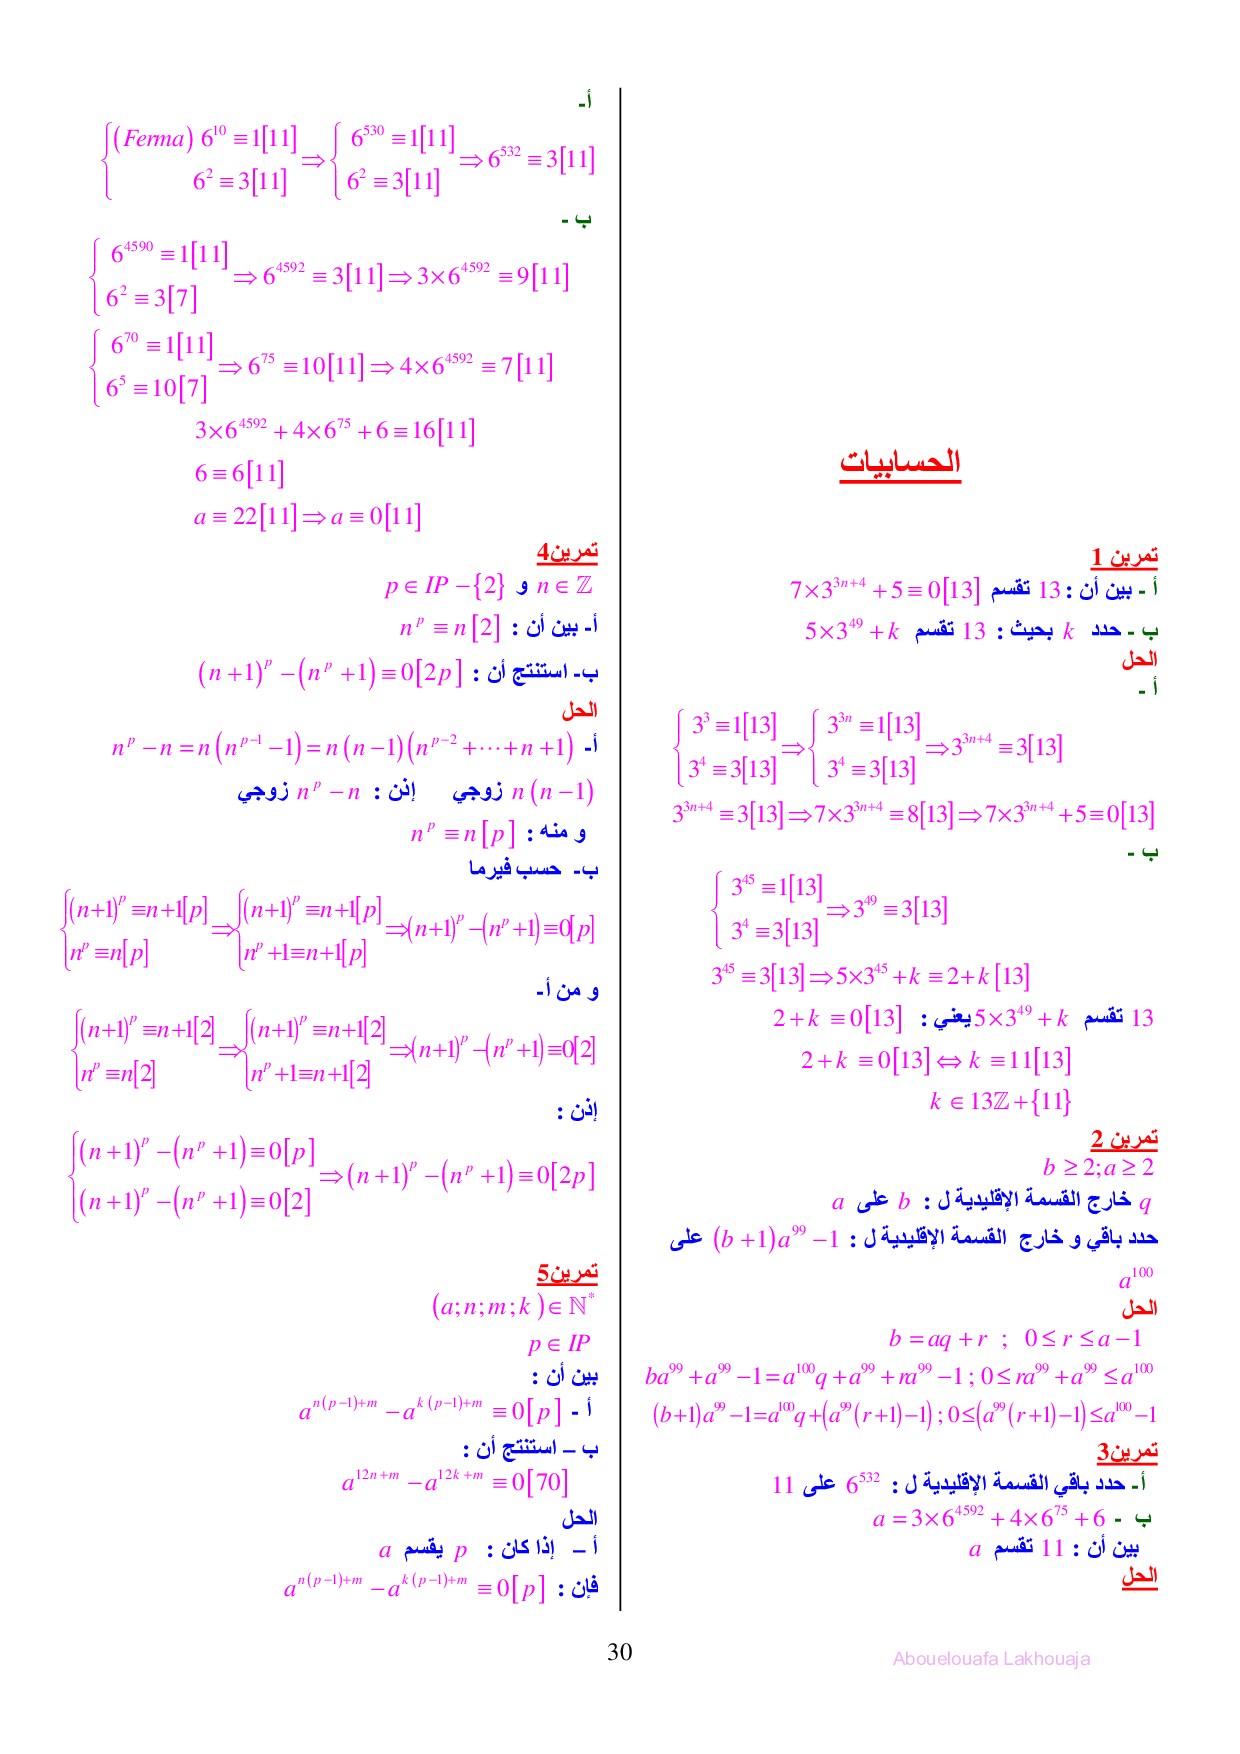 الحسابيات
تمرين 1
أ - بين أن : 13 تقسم 7×3^{3n+4} + 5 ≡ 0[13]
ب - حدد k بحيث : 13 تقسم 5×3^{49} + k
الحل
أ -
{ 3^3 ≡ 1[13] ; 3^4 ≡ 3[13] ⇒ { 3^{3n} ≡ 1[13] ; 3^4 ≡ 3[13] ⇒ 3^{3n+4} ≡ 3[13]
3^{3n+4} ≡ 3[13] ⇒ 7×3^{3n+4} ≡ 8[13] ⇒ 7×3^{3n+4} + 5 ≡ 0[13]
ب -
{ 3^{45} ≡ 1[13] ; 3^4 ≡ 3[13] ⇒ 3^{49} ≡ 3[13]
3^{45} ≡ 3[13] ⇒ 5×3^{45} + k ≡ 2 + k[13]
13 تقسم 5×3^{49} + k يعني : 2 + k ≡ 0[13]
2 + k ≡ 0[13] ⇔ k ≡ 11[13]
k ∈ 13ℤ + {11}
تمرين 2
b ≥ 2; a ≥ 2
q خارج القسمة الإقليدية ل : b على a
حدد باقي و خارج القسمة الإقليدية ل : (b+1)a^{99} − 1 على
a^{100}
الحل
b = aq + r ; 0 ≤ r ≤ a − 1
ba^{99} + a^{99} − 1 = a^{100}q + a^{99} + ra^{99} − 1 ; 0 ≤ ra^{99} + a^{99} ≤ a^{100}
(b+1)a^{99} − 1 = a^{100}q + (a^{99}(r+1) − 1) ; 0 ≤ (a^{99}(r+1) − 1) ≤ a^{100} − 1
تمرين3
أ- حدد باقي القسمة الإقليدية ل : 6^{532} على 11
ب - a = 3×6^{4592} + 4×6^{75} + 6
بين أن : 11 تقسم a
الحل
أ-
{ (Ferma) 6^{10} ≡ 1[11] ; 6^2 ≡ 3[11] ⇒ { 6^{530} ≡ 1[11] ; 6^2 ≡ 3[11] ⇒ 6^{532} ≡ 3[11]
ب -
{ 6^{4590} ≡ 1[11] ; 6^2 ≡ 3[7] ⇒ 6^{4592} ≡ 3[11] ⇒ 3×6^{4592} ≡ 9[11]
{ 6^{70} ≡ 1[11] ; 6^5 ≡ 10[7] ⇒ 6^{75} ≡ 10[11] ⇒ 4×6^{4592} ≡ 7[11]
3×6^{4592} + 4×6^{75} + 6 ≡ 16[11]
6 ≡ 6[11]
a ≡ 22[11] ⇒ a ≡ 0[11]
تمرين4
n ∈ ℤ و p ∈ IP − {2}
أ- بين أن : n^p ≡ n[2]
ب- استنتج أن : (n+1)^p − (n^p + 1) ≡ 0[2p]
الحل
أ- n^p − n = n(n^{p−1} − 1) = n(n−1)(n^{p−2} + ⋯ + n + 1)
n(n−1) زوجي إذن : n^p − n زوجي
و منه : n^p ≡ n[p]
ب- حسب فيرما
{ (n+1)^p ≡ n+1[p] ; n^p ≡ n[p] ⇒ { (n+1)^p ≡ n+1[p] ; n^p + 1 ≡ n+1[p] ⇒ (n+1)^p − (n^p + 1) ≡ 0[p]
و من أ-
{ (n+1)^p ≡ n+1[2] ; n^p ≡ n[2] ⇒ { (n+1)^p ≡ n+1[2] ; n^p + 1 ≡ n+1[2] ⇒ (n+1)^p − (n^p + 1) ≡ 0[2]
إذن :
{ (n+1)^p − (n^p + 1) ≡ 0[p] ; (n+1)^p − (n^p + 1) ≡ 0[2] ⇒ (n+1)^p − (n^p + 1) ≡ 0[2p]
تمرين5
(a; n; m; k) ∈ ℕ^*
p ∈ IP
بين أن :
أ - a^{n(p−1)+m} − a^{k(p−1)+m} ≡ 0[p]
ب – استنتج أن :
a^{12n+m} − a^{12k+m} ≡ 0[70]
الحل
أ – إذا كان : p يقسم a
فإن : a^{n(p−1)+m} − a^{k(p−1)+m} ≡ 0[p]
30
Abouelouafa Lakhouaja